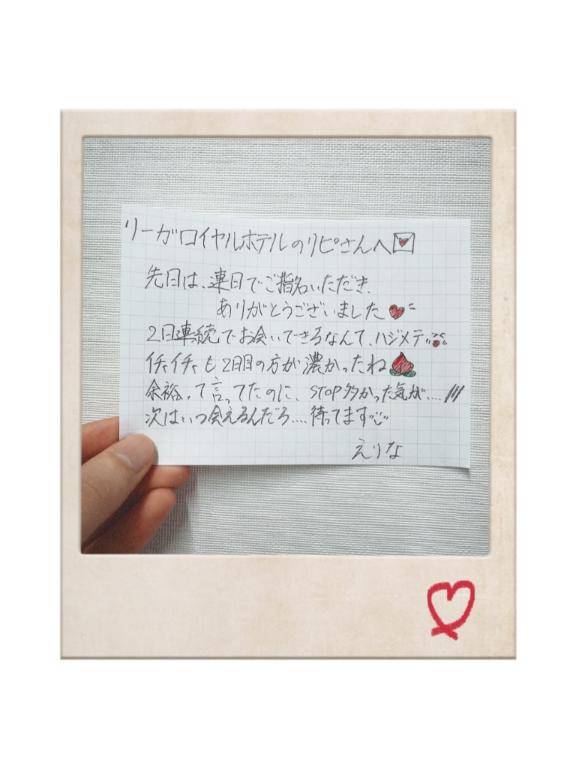 リーガロイヤルホテルのリピさんへ
先日は、連日でご指名いただき、
ありがとうございました
2日連続でお会いできるなんて、ハジメテ
イチャイチャも2日目の方が濃かったね
余裕って言ってたのに、STOP多かった気が....///
次はいつ会えるんだろ....待ってます
えりな